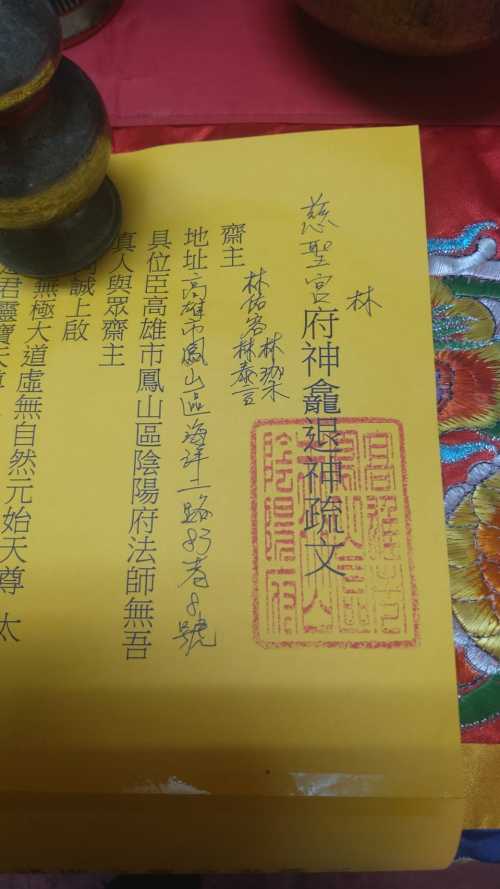 慈聖宮 林府神龕退神疏文
齋主
林佑 林 林泰言
地址高雄市鳳山區海洋二路 號
具位臣高雄市鳳山區陰陽府法師無吾
真人與眾齋主
誠上啟
無極大道虛無自然元始天尊 太
君靈寶天尊
高雄市鳳山區陰陽府